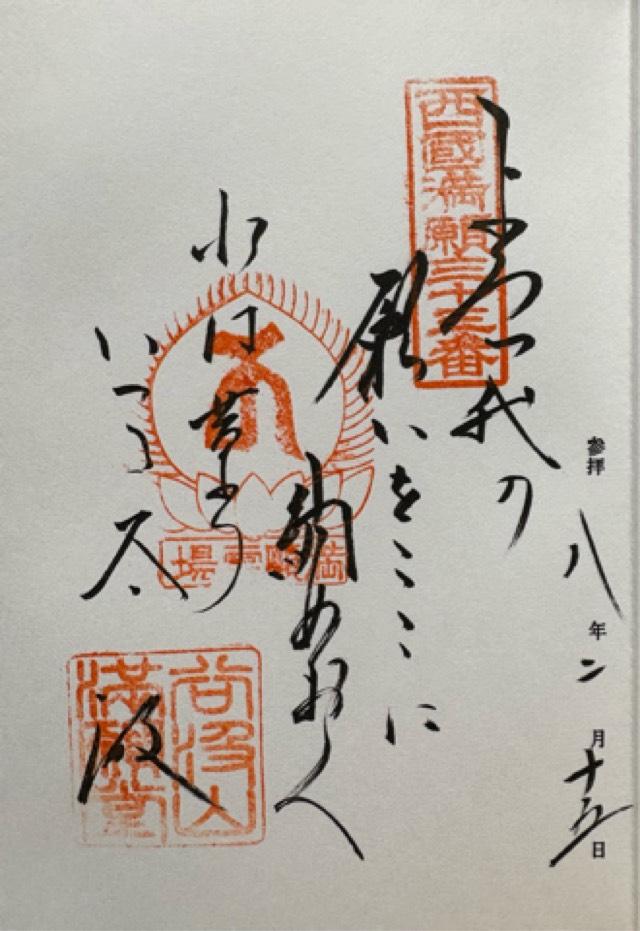 参拝 八年二月十五日
西國満願三十三番
よろつ代の
願いをここに
納めおく
水は苔より
いつる谷
汲
満願霊場
谷汲山
満願堂